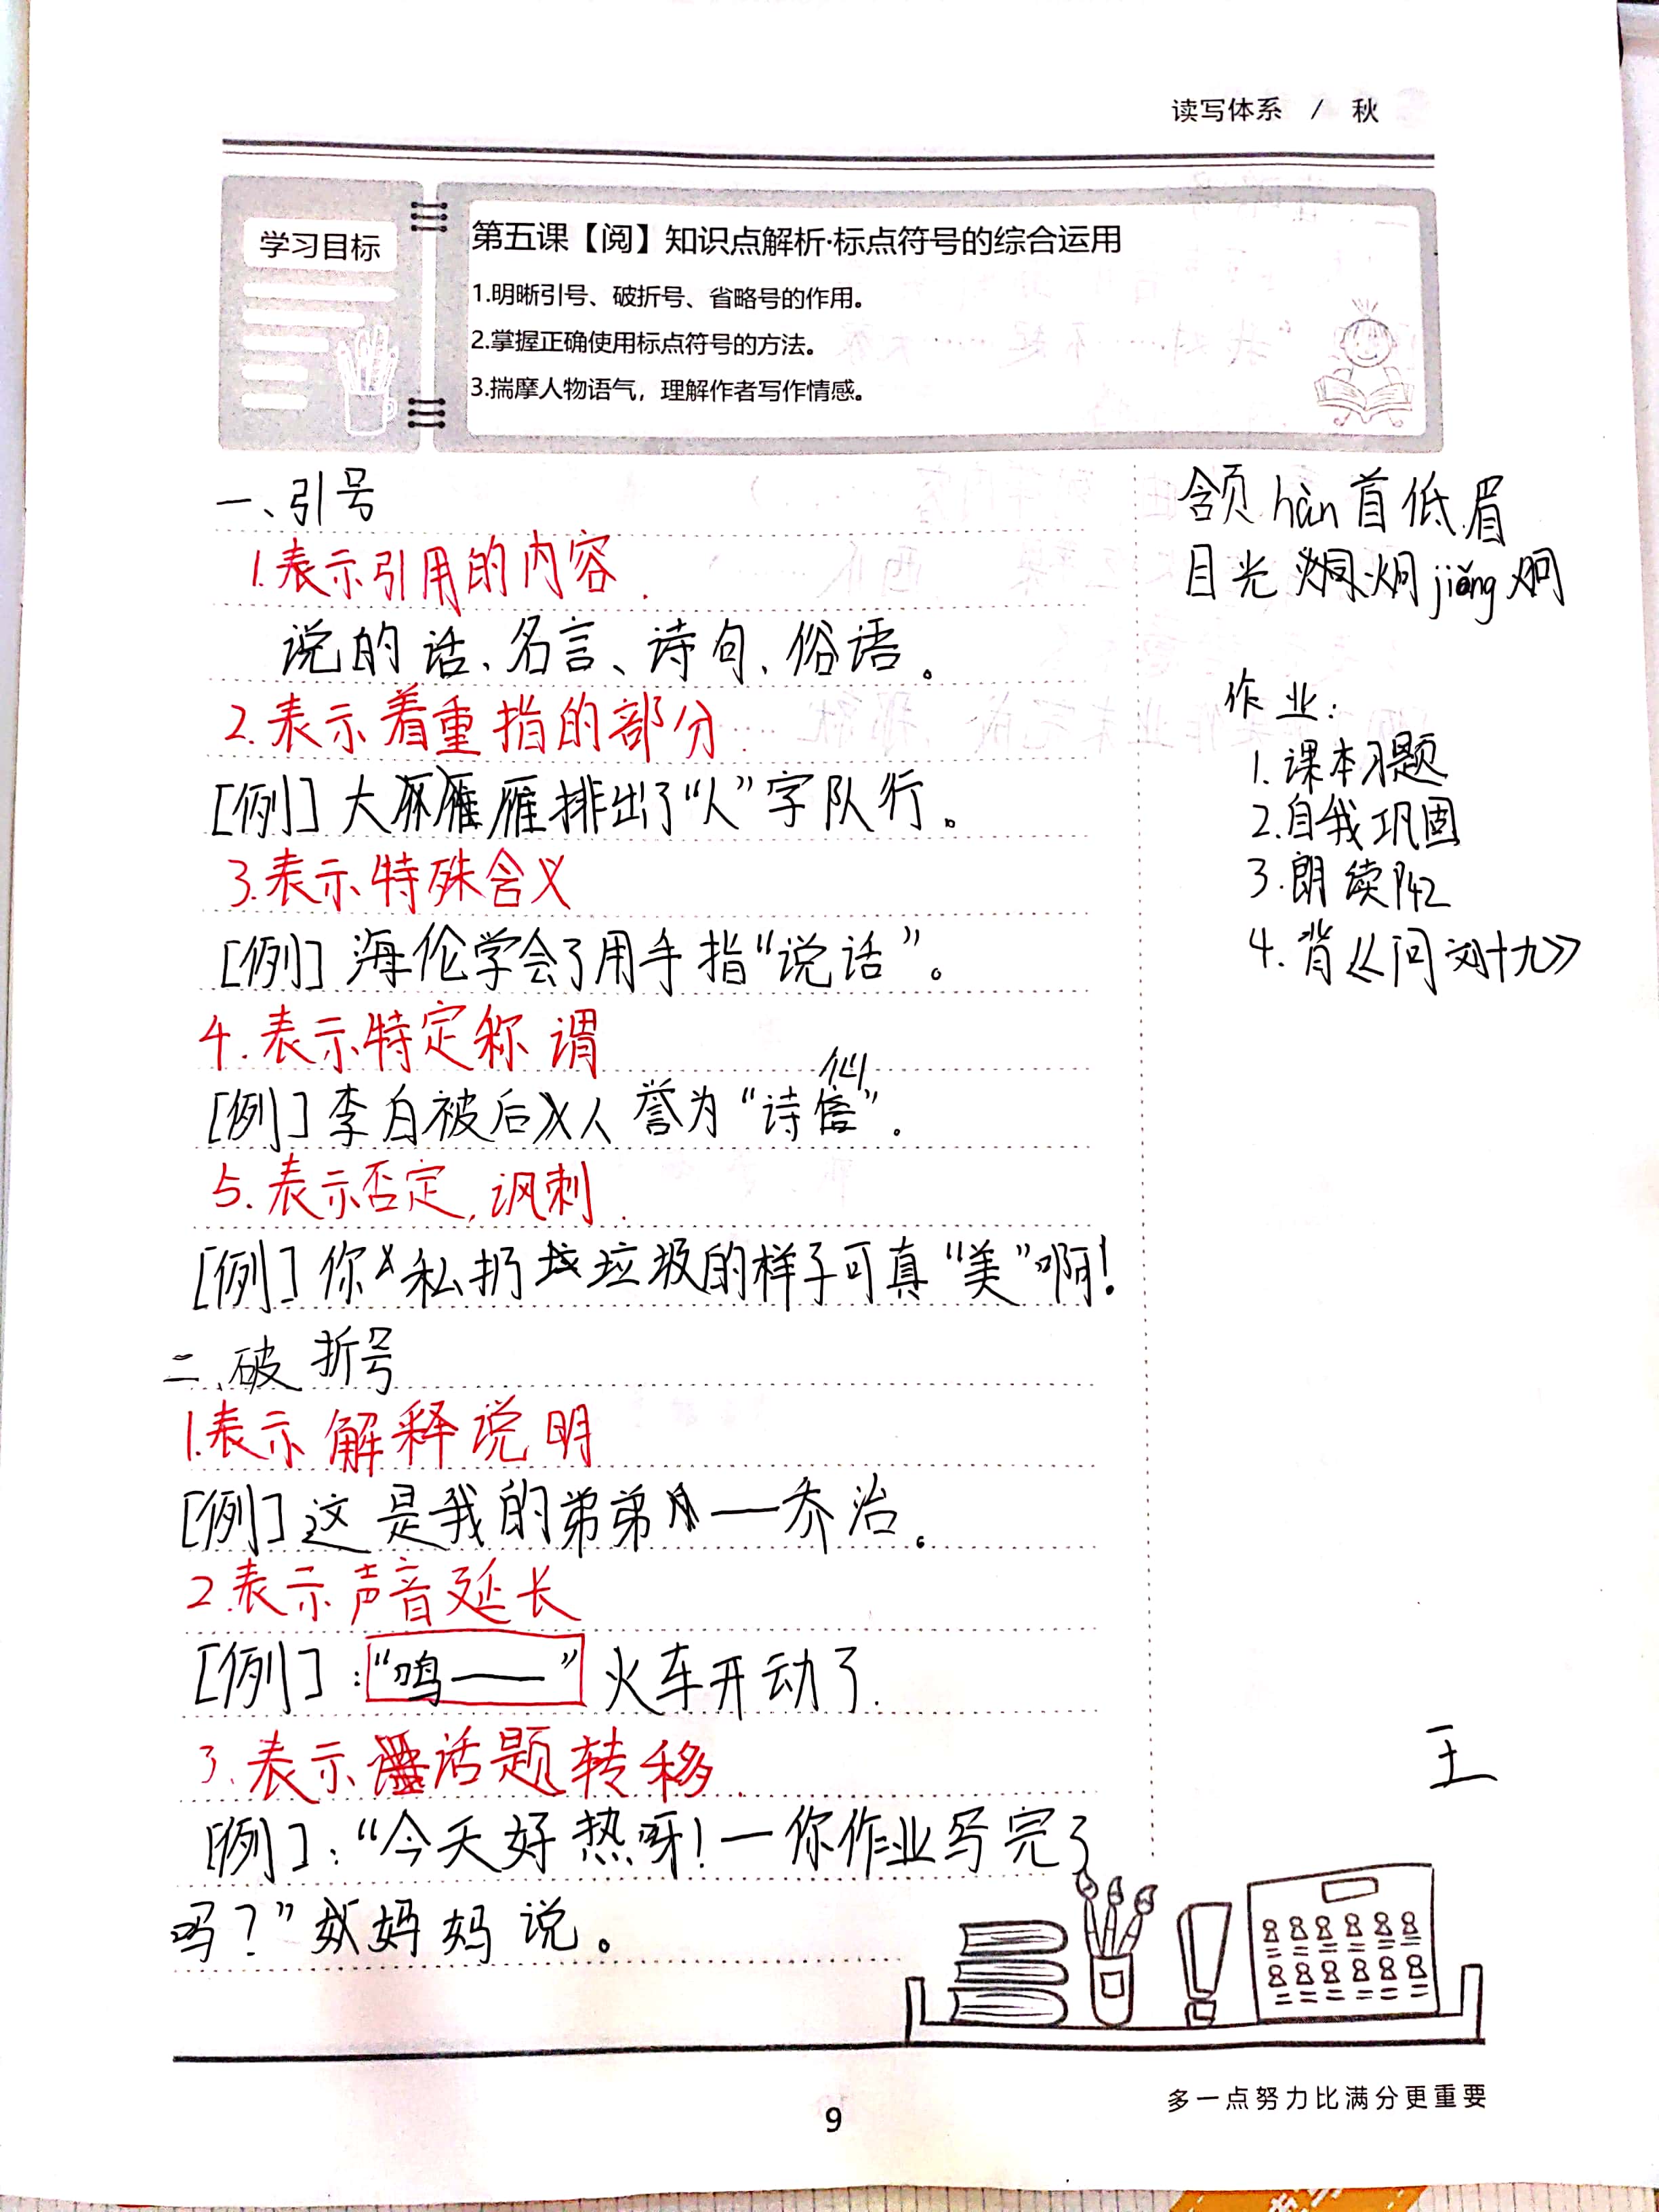 读写体系 / 秋
学习目标
第五课【阅】知识点解析·标点符号的综合运用
1.明晰引号、破折号、省略号的作用。
2.掌握正确使用标点符号的方法。
3.揣摩人物语气，理解作者写作情感。
一、引号
1.表示引用的内容.
说的话、名言、诗句、俗语。
2.表示着重指的部分.
[例]大雁排出了“人”字队行。
3.表示特殊含义
[例]海伦学会了用手指“说话”。
4.表示特定称谓
[例]李白被后人誉为“诗仙”.
5.表示否定,讽刺.
[例]你私扔垃圾的样子可真“美”啊!
二、破折号
1.表示解释说明
[例]这是我的弟弟——乔治。
2.表示声音延长
[例]:“鸣——”火车开动了.
3.表示话题转移.
[例]:“今天好热呀!—你作业写完了
吗?”妈妈说。
颔hàn首低眉
目光炯jiǒng炯
作业:
1.课本习题
2.自我巩固
3.朗续P42
4.背《问刘十九》
王
多一点努力比满分更重要
9